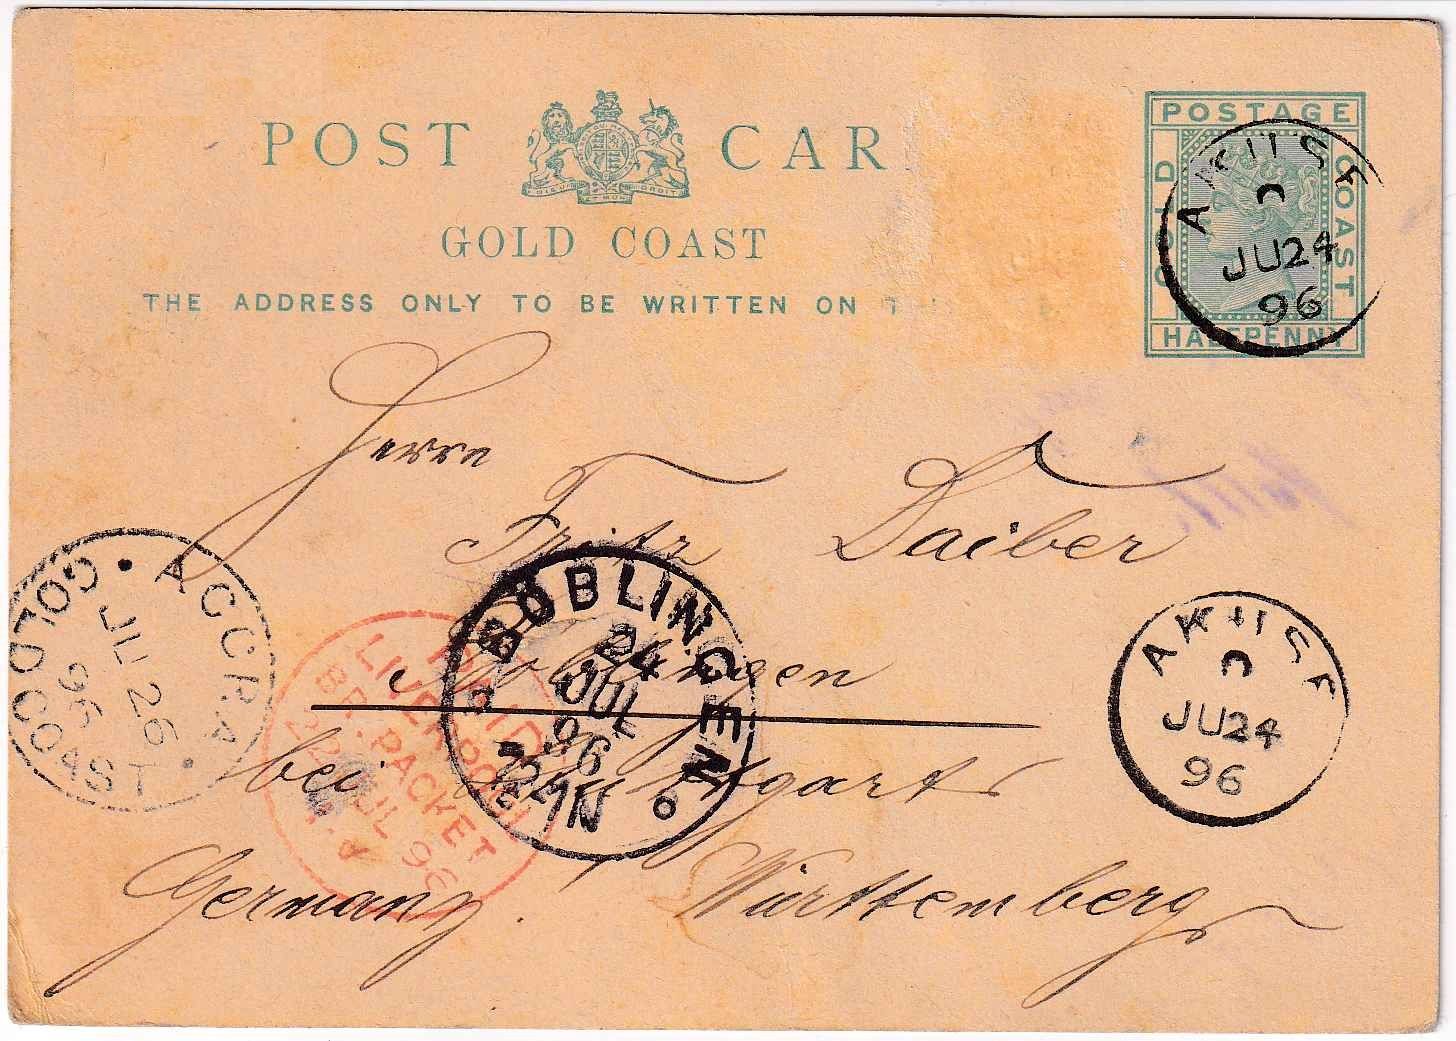 POST CAR
GOLD COAST
THE ADDRESS ONLY TO BE WRITTEN ON T
POSTAGE
GOLD COAST
HALFPENNY
AKUSE
JU24
96
Herrn
Fritz Daiber
Böblingen
bei Stuttgart
Germany. Württemberg
ACCRA
GOLD COAST
JU 26
96
PAID
LIVERPOOL
BR. PACKET
22 JUL 96
BÖBLINGEN
24
JUL
96
AKUSE
JU24
96